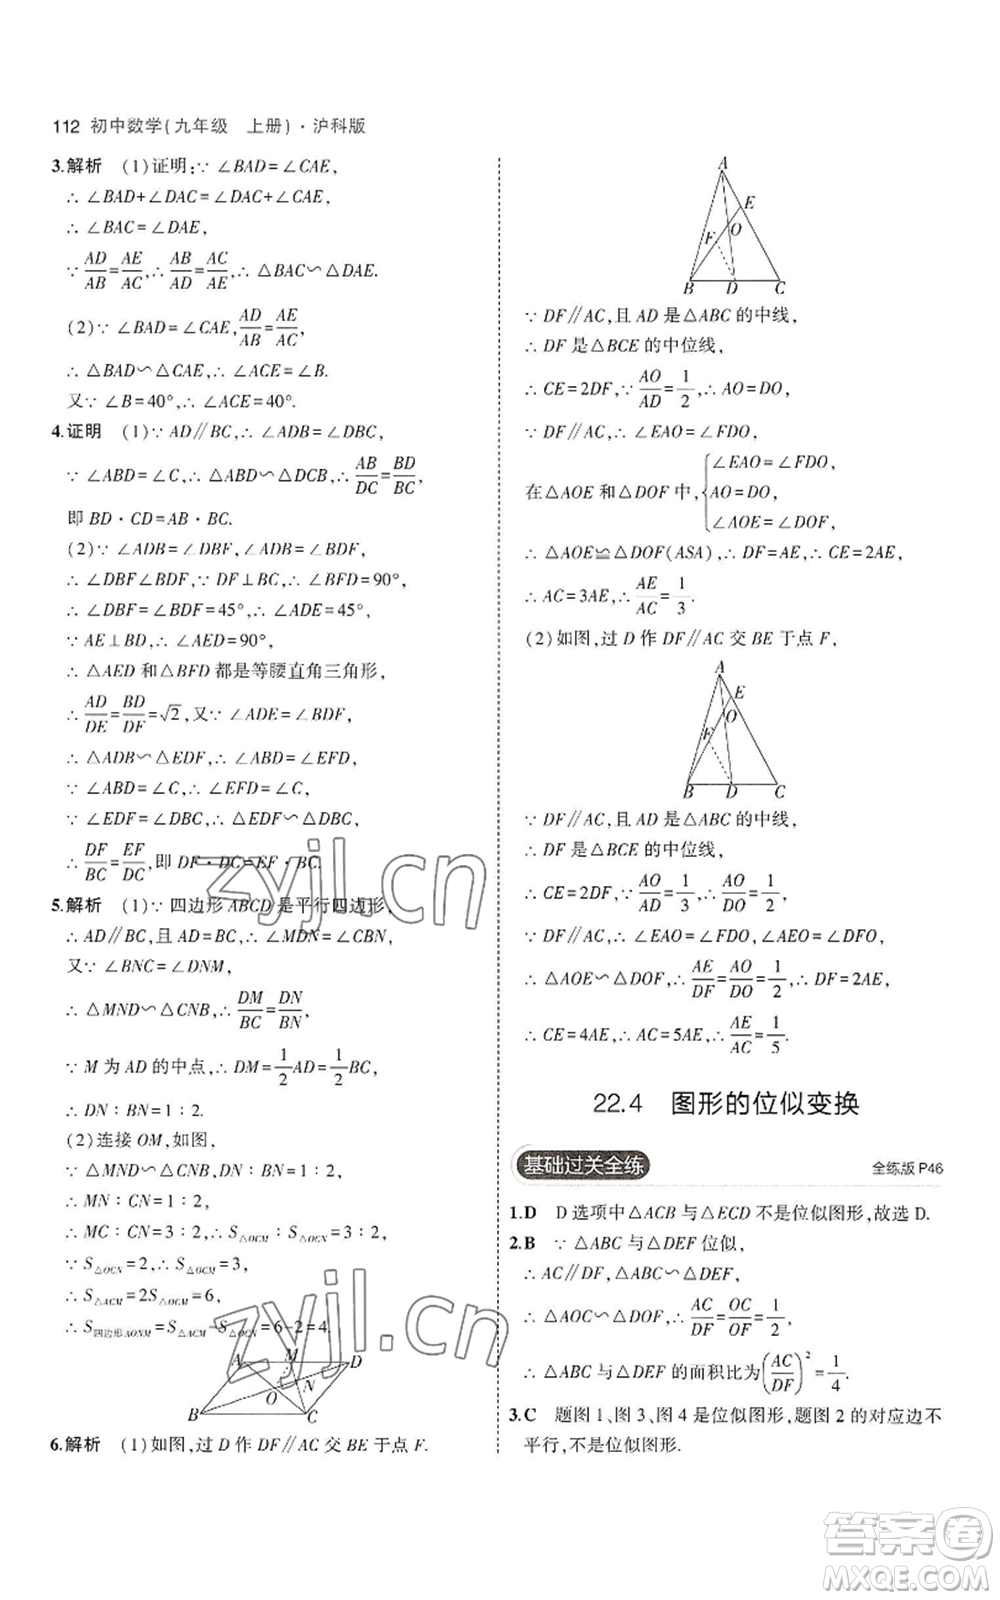 112 初中数学(九年级　上册)·沪科版
3.解析 (1)证明:∵ ∠BAD=∠CAE,
∴ ∠BAD+∠DAC=∠DAC+∠CAE,
∴ ∠BAC=∠DAE,
∵ AD/AB=AE/AC,∴ AB/AD=AC/AE,∴ △BAC∽△DAE.
(2)∵ ∠BAD=∠CAE,AD/AB=AE/AC,
∴ △BAD∽△CAE,∴ ∠ACE=∠B.
又∵ ∠B=40°,∴ ∠ACE=40°.
4.证明 (1)∵ AD∥BC,∴ ∠ADB=∠DBC,
∵ ∠ABD=∠C,∴ △ABD∽△DCB,∴ AB/DC=BD/BC,
即 BD·CD=AB·BC.
(2)∵ ∠ADB=∠DBC,∠ADB=∠BDF,
∴ ∠DBF∠BDF,∵ DF⊥BC,∴ ∠BFD=90°,
∴ ∠DBF=∠BDF=45°,∴ ∠ADE=45°,
∵ AE⊥BD,∴ ∠AED=90°,
∴ △AED 和△BFD 都是等腰直角三角形,
∴ AD/DE=BD/DF=√2,又∵ ∠ADE=∠BDF,
∴ △ADB∽△EDF,∴ ∠ABD=∠EFD,
∵ ∠ABD=∠C,∴ ∠EFD=∠C,
∵ ∠EDF=∠DBC,∴ △EDF∽△DBC,
∴ DF/BC=EF/DC,即 DF·DC=EF·BC.
5.解析 (1)∵ 四边形 ABCD 是平行四边形,
∴ AD∥BC,且 AD=BC,∴ ∠MDN=∠CBN,
又∵ ∠BNC=∠DNM,
∴ △MND∽△CNB,∴ DM/BC=DN/BN,
∵ M 为 AD 的中点,∴ DM=1/2AD=1/2BC,
∴ DN∶BN=1∶2.
(2)连接 OM,如图,
∵ △MND∽△CNB,
∴ MN∶CN=1∶2,
∴ MC∶CN=3∶2,∴ S△OCM∶S△OCN=3∶2,
∵ S△OCN=2,∴ S△OCM=3,
∴ S△ACM=2S△OCM=6,
∴ S四边形AONM=S△ACM-S△OCN=6-2=4.
A M D
O N
B C
6.解析 (1)如图,过 D 作 DF∥AC 交 BE 于点 F.
A
E
O
F
B D C
∵ DF∥AC,且 AD 是△ABC 的中线,
∴ DF 是△BCE 的中位线,
∴ CE=2DF,∵ AO/AD=1/2,∴ AO=DO,
∵ DF∥AC,∴ ∠EAO=∠FDO,
在△AOE 和△DOF 中,{∠EAO=∠FDO,
AO=DO,
∠AOE=∠DOF,
∴ △AOE≌△DOF(ASA),∴ DF=AE,∴ CE=2AE,
∴ AC=3AE,∴ AE/AC=1/3.
(2)如图,过 D 作 DF∥AC 交 BE 于点 F,
A
E
O
F
B D C
∵ DF∥AC,且 AD 是△ABC 的中线,
∴ DF 是△BCE 的中位线,
∴ CE=2DF,∵ AO/AD=1/3,∴ AO/DO=1/2,
∵ DF∥AC,∴ ∠EAO=∠FDO,∠AEO=∠DFO,
∴ △AOE∽△DOF,∴ AE/DF=AO/DO=1/2,∴ DF=2AE,
∴ CE=4AE,∴ AC=5AE,∴ AE/AC=1/5.
22.4　图形的位似变换
基础过关全练 全练版 P46
1.D D 选项中△ACB 与△ECD 不是位似图形,故选 D.
2.B ∵ △ABC 与△DEF 位似,
∴ AC∥DF,△ABC∽△DEF,
∴ △AOC∽△DOF,∴ AC/DF=OC/OF=1/2,
∴ △ABC 与△DEF 的面积比为(AC/DF)²=1/4.
3.C 题图 1、图 3、图 4 是位似图形,题图 2 的对应边不
平行,不是位似图形.
zyjl.cn
zyjl.cn
答案卷
MXQE.COM